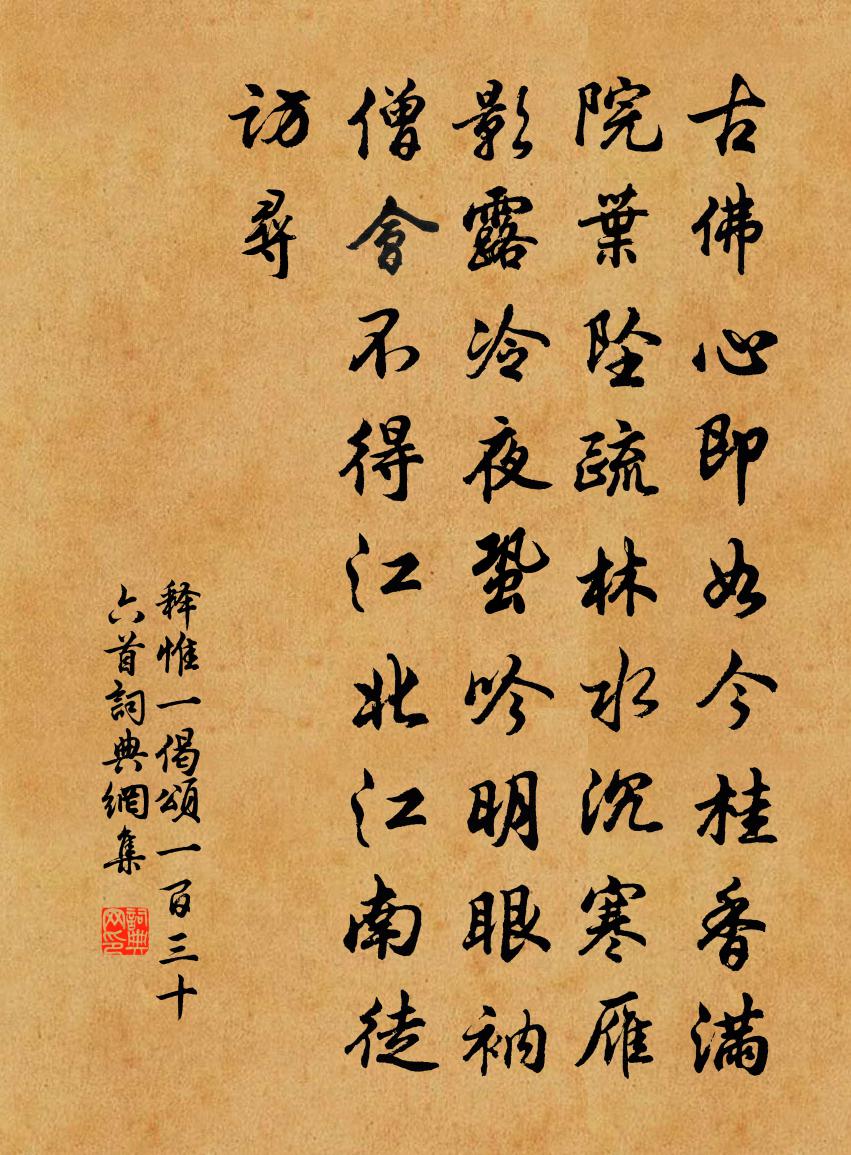 古佛心即如今桂香滿
院葉墜疏林水沉寒雁
影露冷夜蛩吟明眼衲
僧會不得江北江南徒
訪尋
释惟一偈頌一百三十
六首詞典網集
詞典
网印